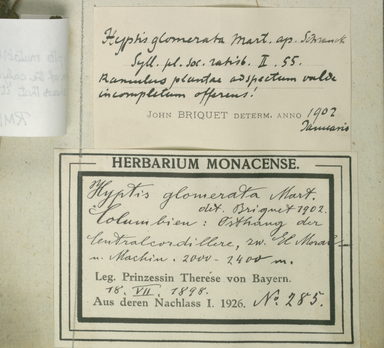 Hyptis glomerata Mart. ap. Schrank
Syll. pl. soc. ratisb. II. 55.
Ramulus plantae adspectum valde
incompletum offerens!
JOHN BRIQUET DETERM. ANNO 1902
Januario
HERBARIUM MONACENSE.
Hyptis glomerata Mart.
det. Briquet 1902.
Columbien: Osthang der
Centralcordillere, zw. El Moral
u. Machin. 2000-2400 m.
Leg. Prinzessin Therese von Bayern.
18. VII. 1898.
Aus deren Nachlass I. 1926. No 285.